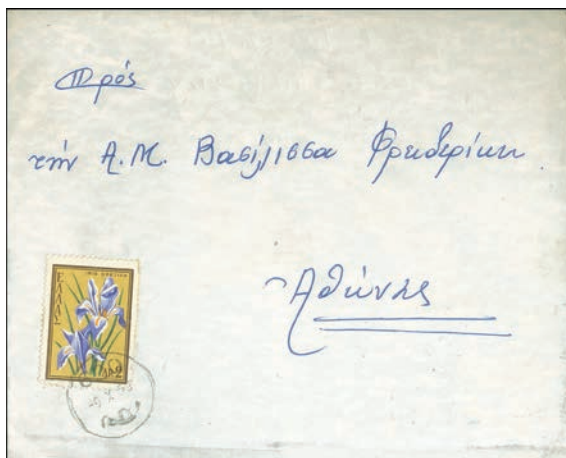 Πρός
την Α.Μ. Βασίλισσα Φρειδερίκη
Αθήνας
ΕΛΛΑΣ